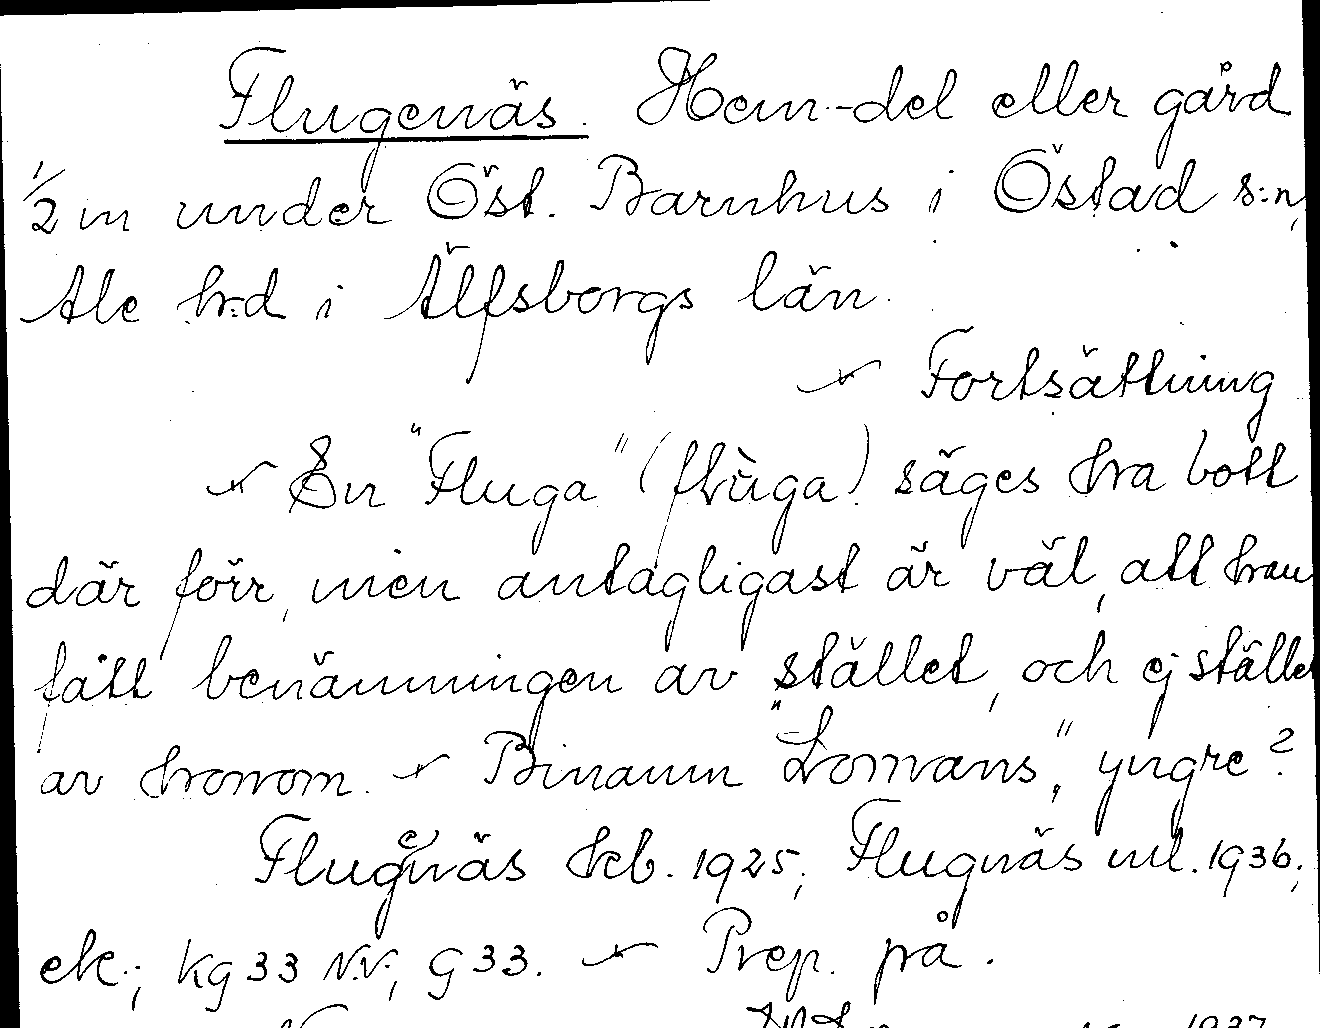 Flugenäs. Hem.-del eller gård
1/2 m under Öst. Barnhus i Östad s:n,
Ale h:d i Älfsborgs län.
Fortsättning
En "Fluga" (flùga) säges ha bott
där förr, men antagligast är väl, att han
fått benämningen av stället, och ej stället
av honom. - Binamn "Lomans", yngre?
Flugenäs hcb. 1925; Flugnäs ml. 1936;
ek.; kg 33 N.V.; g 33. - Prep. på.
1937